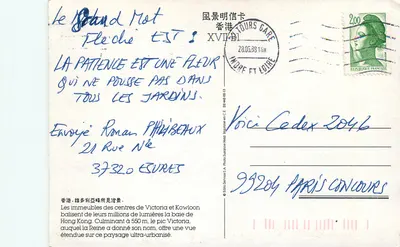 Le Grand Mot
Fleché EST :
LA PATIENCE EST UNE FLEUR
QUI NE POUSSE PAS DANS
TOUS LES JARDINS.
Envoyé Ronan PHILIBEAUX
21 Rue Nle
37320 ESVRES
風景明信卡
香港
XVII-B1
TOURS GARE
INDRE ET LOIRE
2,00
Voici Cedex 2046
99204 PARIS CONCOURS
Les immeubles des centres de Victoria et Kowloon
balisent de leurs millions de lumières la baie de
Hong Kong. Culminant à 550 m, le pic Victoria,
auquel la Reine a donné son nom, offre une vue
étendue sur ce paysage ultra-urbanisé.